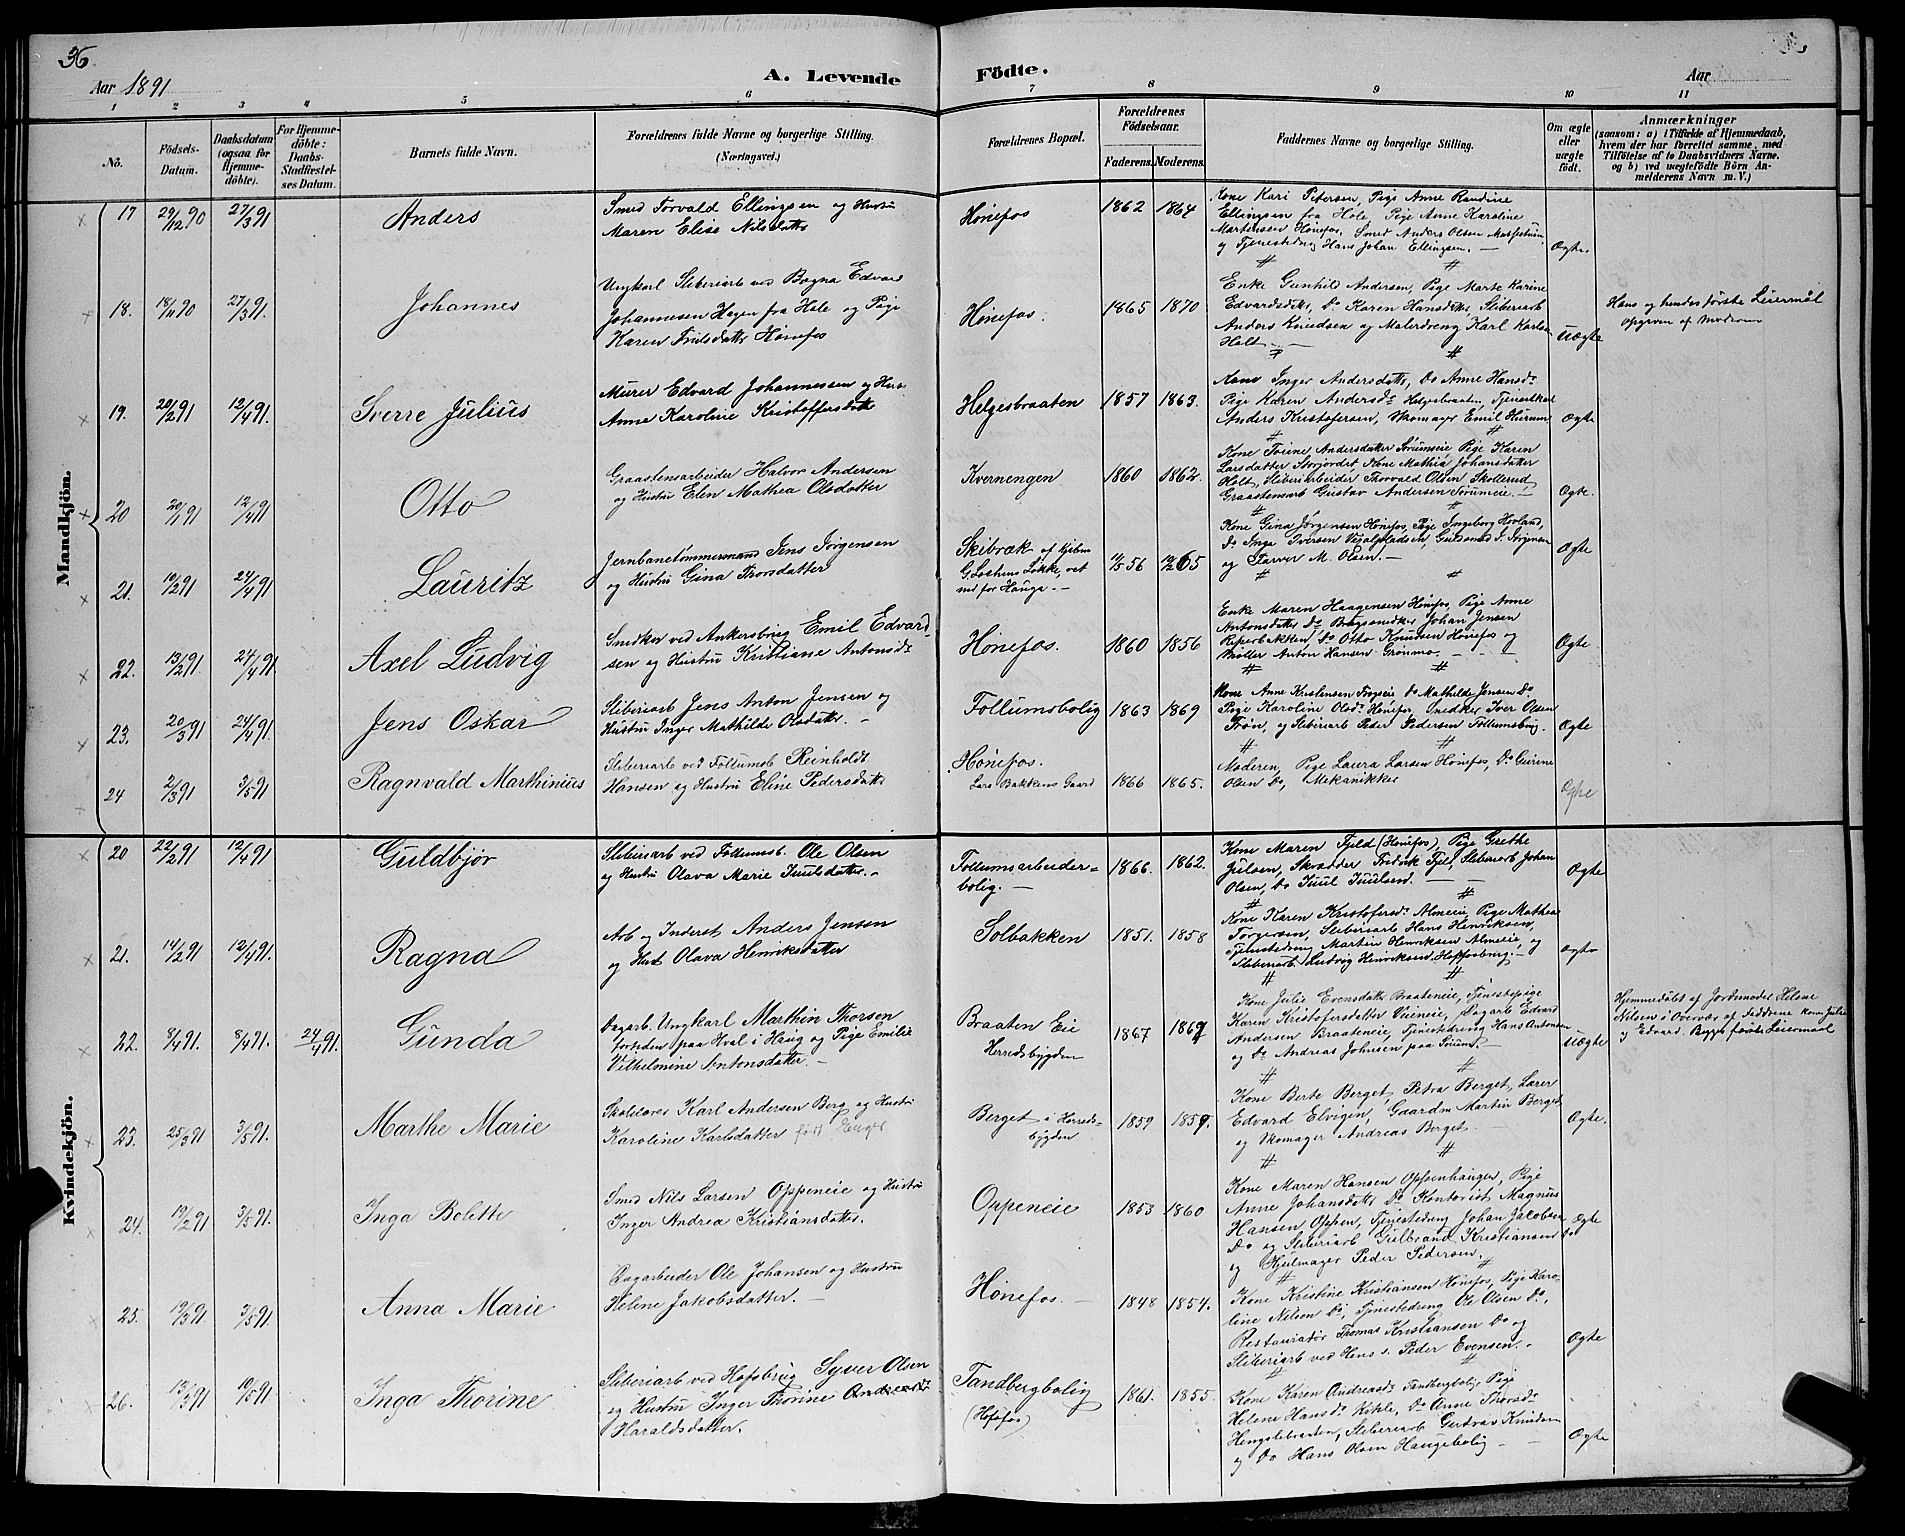 36
Aar 1891
A. Levende
Födte.
Aar
1 2 3 4 5 6 7 8 9 10 11
No.
Födsels-
Datum.
Daabsdatum
(ogsaa for
Hjemme-
döbte).
For Hjemme-
döbte:
Daabs-
Stadfæstel-
ses Datum.
Barnets fulde Navn.
Forældrenes fulde Navne og borgerlige Stilling.
(Næringsvei.)
Forældrenes Bopæl.
Forældrenes
Födselsaar.
Faderens. Moderens.
Faddernes Navne og borgerlige Stilling.
Om ægte
eller
uægte
födt.
Anmærkninger
(saasom: a) i Tilfælde af Hjemmedaab,
hvem der har forrettet samme, med
Tilföielse af to Daabsvidners Navne.
og b) ved uægtefödte Börn An-
melderens Navn m. V.)
Mandkjön.
17 29/12 90 27/3 91 Anders
Smed Torvald Ellingsen og Hustru
Maren Elise Nilsdatter
Hönefos 1862 1864
Kone Kari Petersen, Pige Anne Randine
Ellingsen fra Hole, Pige Anne Karoline
Martinsen Hönefos, Smed Anders Olsen
og Tjenestedreng Hans Johan Ellingsen. —
Ægte.
18. 18/11 90 27/3 91. Johannes
Ungkarl Sliberiarb ved Bægna Edvard
Johannesen Hagen fra Hole og Pige
Karen Hönefos
Hönefos. 1865 1870
Enke Gunhild Andersen, Pige Marte Karine
Edvardsdtr, Do Karen Hansdtr, Sliberiarb
Anders Knudsen og Malerdreng Karl Karlsen
Holt —
Uægte
Hans og hendes förste Leiermål
opgiven af Moderen
19. 20/2 91 12/4 91. Sverre Julius
Murer Edvard Johannessen og Hus.
Anne Karoline Kristoffersdatter
Helgesbraaten 1857 1863.
Kone Inger Andersdatter, Do Anne Hansd.
Pige Karen Andersd. Helgesbraaten, Tjenestkarl
Anders Kristofersen, Skomager Emil Hurum
Ægte
20 20/1 91 12/4 91 Otto
Graastensarbeider Halvor Andersen
og Hustru Elen Mathea Olsdatter
Kvernengen 1860 1862.
Kone Trine Andersdatter Sörumeie Pige Karen
Larsdatter Storjordet, Kone Mathia Johansdatter
Holt, Sliberiarbeider Thorvald Olsen Skollerud
Graastensarb Gustav Andersen Sörumeie. —
Ægte.
21. 10/2 91 24/4 91 Lauritz
Jernbanetömmermand Jens Jörgensen
og Hustru Gina Thorsdatter
Skibræk
G. Löchens Lökke, vest
ned for Hauga. —
56 65
Kone Gina Jörgensen Hönefos, Pige Ingeborg Hovland,
Do Inga Iversen, Guldsmed J. Jörgensen
og Farver M. Olsen. —
Ægte
22. 13/2 91. 24/4 91. Axel Ludvig
Snidker ved Ankersbrug Emil Edvard
sen og Hustru Kristiane Antonsdr
Hönefos. 1860 1856
Enke Maren Haagensen Hönefos, Pige Anne
Antonsdatter Do Bogsnidker Johan Jensen
Reperbakken, Do Otto Knudsen Hönefos og
Möller Anton Hansen Grönmo.
Ægte
23. 20/3 91 24/4 91 Jens Oskar
Sliberiarb Jens Anton Jensen og
Hustru Inger Mathilde Olsdatter. —
Follumsbolig 1863 1869
Kone Anne Kristensen, Do Mathilde Jensen Do
Pige Karoline Olsd. Hönefos, Snedker Iver Olsen
Trön, og Sliberiarb Peder Pedersen Follumsbrug.
Ægte
24 2/3 91 3/5 91 Ragnvald Marthinius
Sliberiarb ved Follumsb Reinholdt
Hansen og Hustru Eline Pedersdatter
Hönefos.
Lars Bakkens Gaard
1866 1865.
Moderen, Pige Laura Larsen Hönefos, Do
Olsen Do, Mekanikker
Ægte
Kvindekjön.
20 22/2 91 12/4 91 Guldbjör
Sliberiarb ved Follumsb. Ole Olsen
og Hustru Olava Marie Juulsdatter. —
Follumsarbeider=
bolig. —
1866. 1862.
Kone Maren Fjeld (Hönefos), Pige Grethe
Julsen, Skrædder Fredrik Fjel, Sliberiarb Johan
Olsen, Do Juul Juulsen. —
Ægte
21. 14/2 91 12/4 91. Ragna
Arb og Inderst Anders Jensen
og Hust Olava Henriksdatter
Solbakken 1851. 1858
Kone Karen Kristofersd. Almeie, Pige Mathea
Torgersen, Sliberiarb Hans Henriksen,
Tjenestedreng Martin Henriksen Almeie, og
Sliberiarb. Ludvig Henriksen Hofsfosbrug. —
Ægte
22. 8/4 91. 8/4 91. 24/4 91. Gunda
Dagarb. Ungkarl Marthin Thorsen
fortiden paa Hval i Haug og Pige Emilie
Vilhelmine Antonsdatter. —
Braaten Eie
Herredsbygden
1867 1869
Kone Julie Evensdatter Braateneie, Tjenestepige
Karen Kristofersdatter Veieneie, Dagarb Edvard
Andersen Braateneie, Tjenestedreng Hans Antonsen
og Do Andreas Johnsen paa Sörum. —
Uægte
Hjemmedöbt af Jordemoder Helene
Nilsen i Overvær af Fadderne kone Julie
og Edvard. Begges förste Leiermaal
23. 25/3 91 3/5 91. Marthe Marie
Skolelærer Karl Andersen Berg og Hustru
Karoline Karlsdatter födt Enger
Berget i Herreds-
bygden
1859 1859.
Kone Berte Berget, Petra Berget, Lærer
Edvard Elvigen, Gaardm Martin Berget
og Skomager Andreas Berget. —
Ægte.
24. 19/2 91 3/5 91. Inga Bolette
Smed Nils Larsen Oppeneie og Hustru
Inger Andrea Kristiansdatter.
Oppeneie 1853 1860
Kone Maren Hansen Oppenhangen, Pige
Anne Johansdatter Do Kontorist Magnus
Hansen Oppen, Tjenestedreng Johan Jacobsen
Do og Sliberiarb Gulbrand Kristiansen Do
og Hjulmager Peder Pedersen.
Ægte
25. 19/3 91 3/5 91. Anna Marie
Dagarbeider Ole Johansen og Hustru
Helene Jakobsdatter. —
Hönefos. — 1848 1854.
Kone Kristine Kristiansen Hönefos, Pige Karo-
line Nilsen Do, Tjenestedreng Ole Olsen Do,
Restauratör Thomas Kristiansen Do og
Sliberiarb ved Hens s. Peder Evensen.
Ægte
26. 91 10/5 91. Inga Thorine
Sliberiarb ved Hofsbrug Syver Olsen
og Hustru Inger Thorine Andrea
Haraldsdatter.
Tandbergbolig
(Hofsfos)
1861. 1855.
Kone Karen Andreasd. Tandbergbolig Pige
Helene Hansd. Kihle, Do Anne Thorsd.
Hengslebraaten, Sliberiarb Gustav Knudsen
og Do Hans Olsen Haugebolig —
Ægte